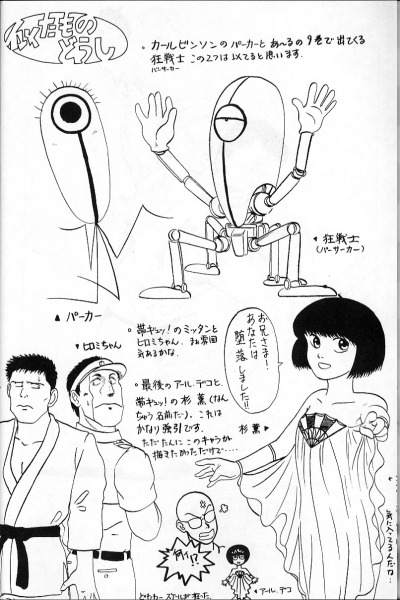 似たもの
どうし
・カールビンソンのパーカーと あ〜るの9巻で出てくる
狂戦士 この2つは似てると思います.
バーサーカー
◀ 狂戦士
(バーサーカー)
▲ パーカー
▼ヒロミちゃん
・帯ギュッ!のミッタンと
ヒロミちゃん. まぁ雰囲
気あるかな.
・最後のアール.デコと、
帯ギュッ!の杉 薫(なん
ちゅう名前だ)、これは
かなり強引です.
ただたんにこのキャラが
描きたかっただけで……
お兄さま!
あなたは
堕落しました!!
杉 薫▶
何ィ!?
◀アール.デコ
気に入ってるんだな…